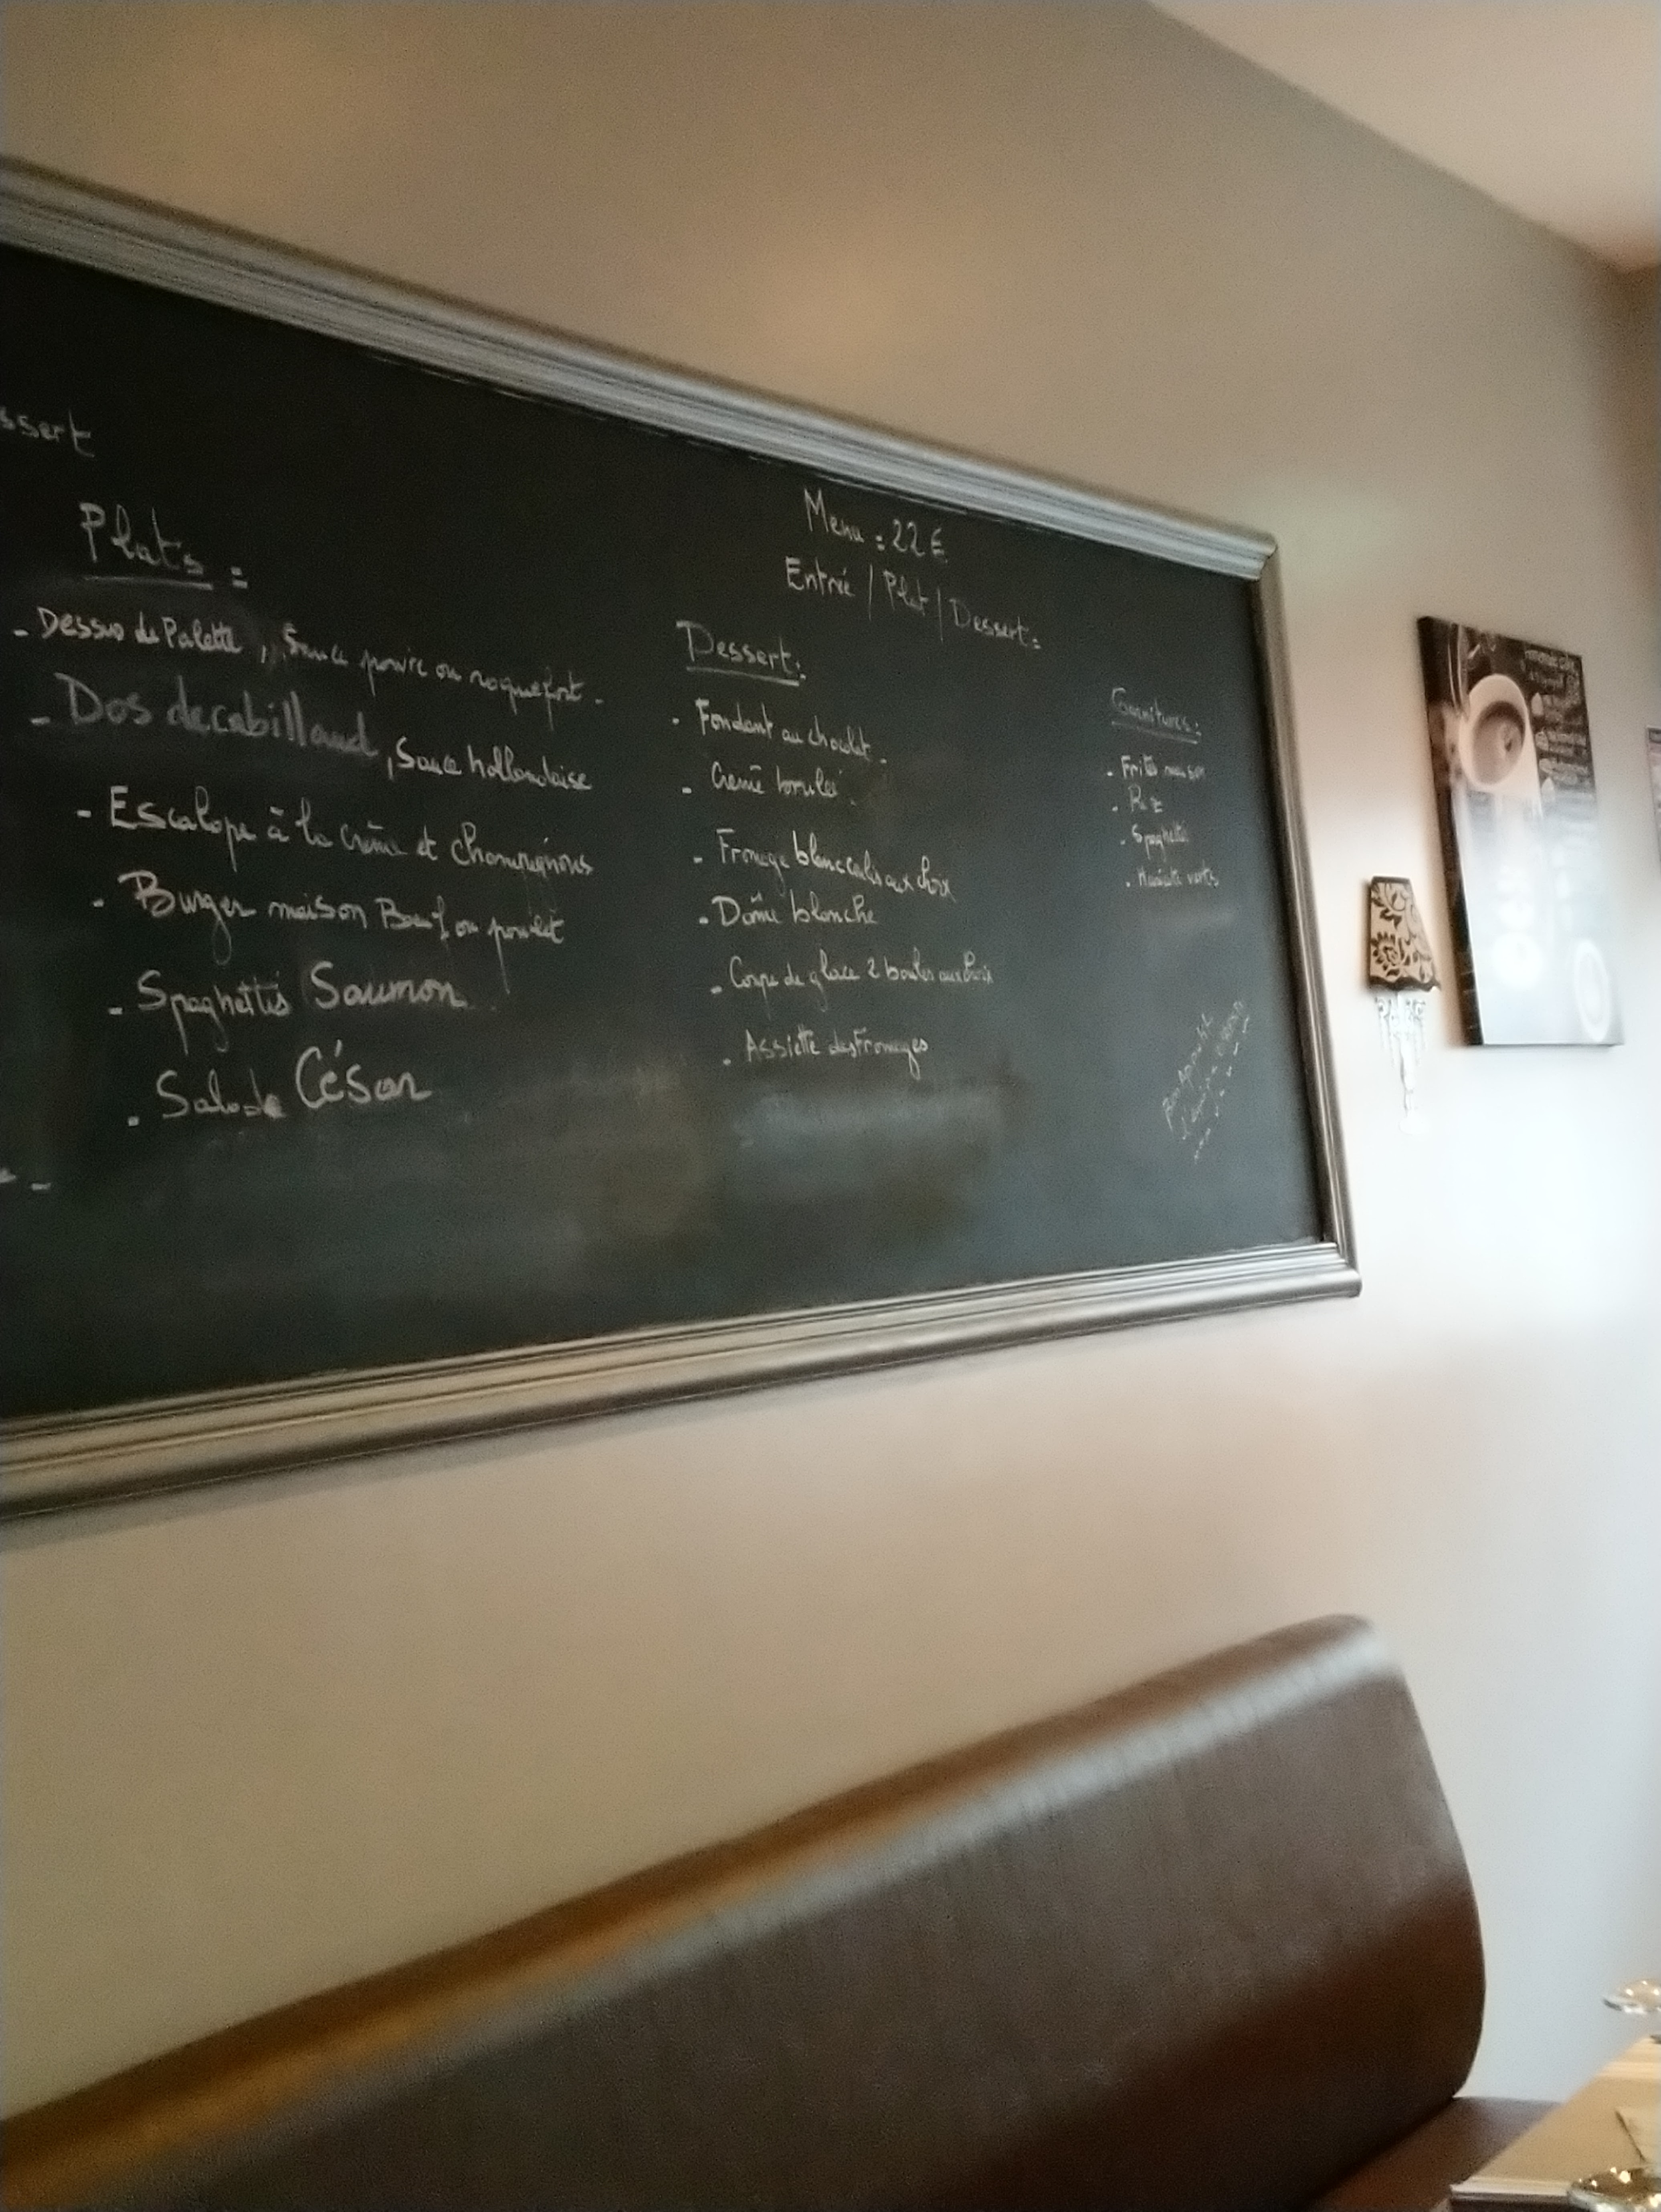 ssert
Plats :
- Dessus de Palette, Sauce poivre ou roquefort -
- Dos de cabillaud, Sauce hollandaise
- Escalope à la crème et champignons
- Burger maison Bœuf ou poulet
- Spaghettis Saumon
- Salade César
Menu : 22 €
Entrée / Plat / Dessert :
Dessert :
- Fondant au chocolat -
- Crème brulée
- Fromage blanc coulis aux choix
- Dame blanche
- Coupe de glace 2 boules aux choix
- Assiette des Fromages
Garnitures :
- Frites maison
- Riz
- Spaghetti
- Haricots verts
Bon Appétit